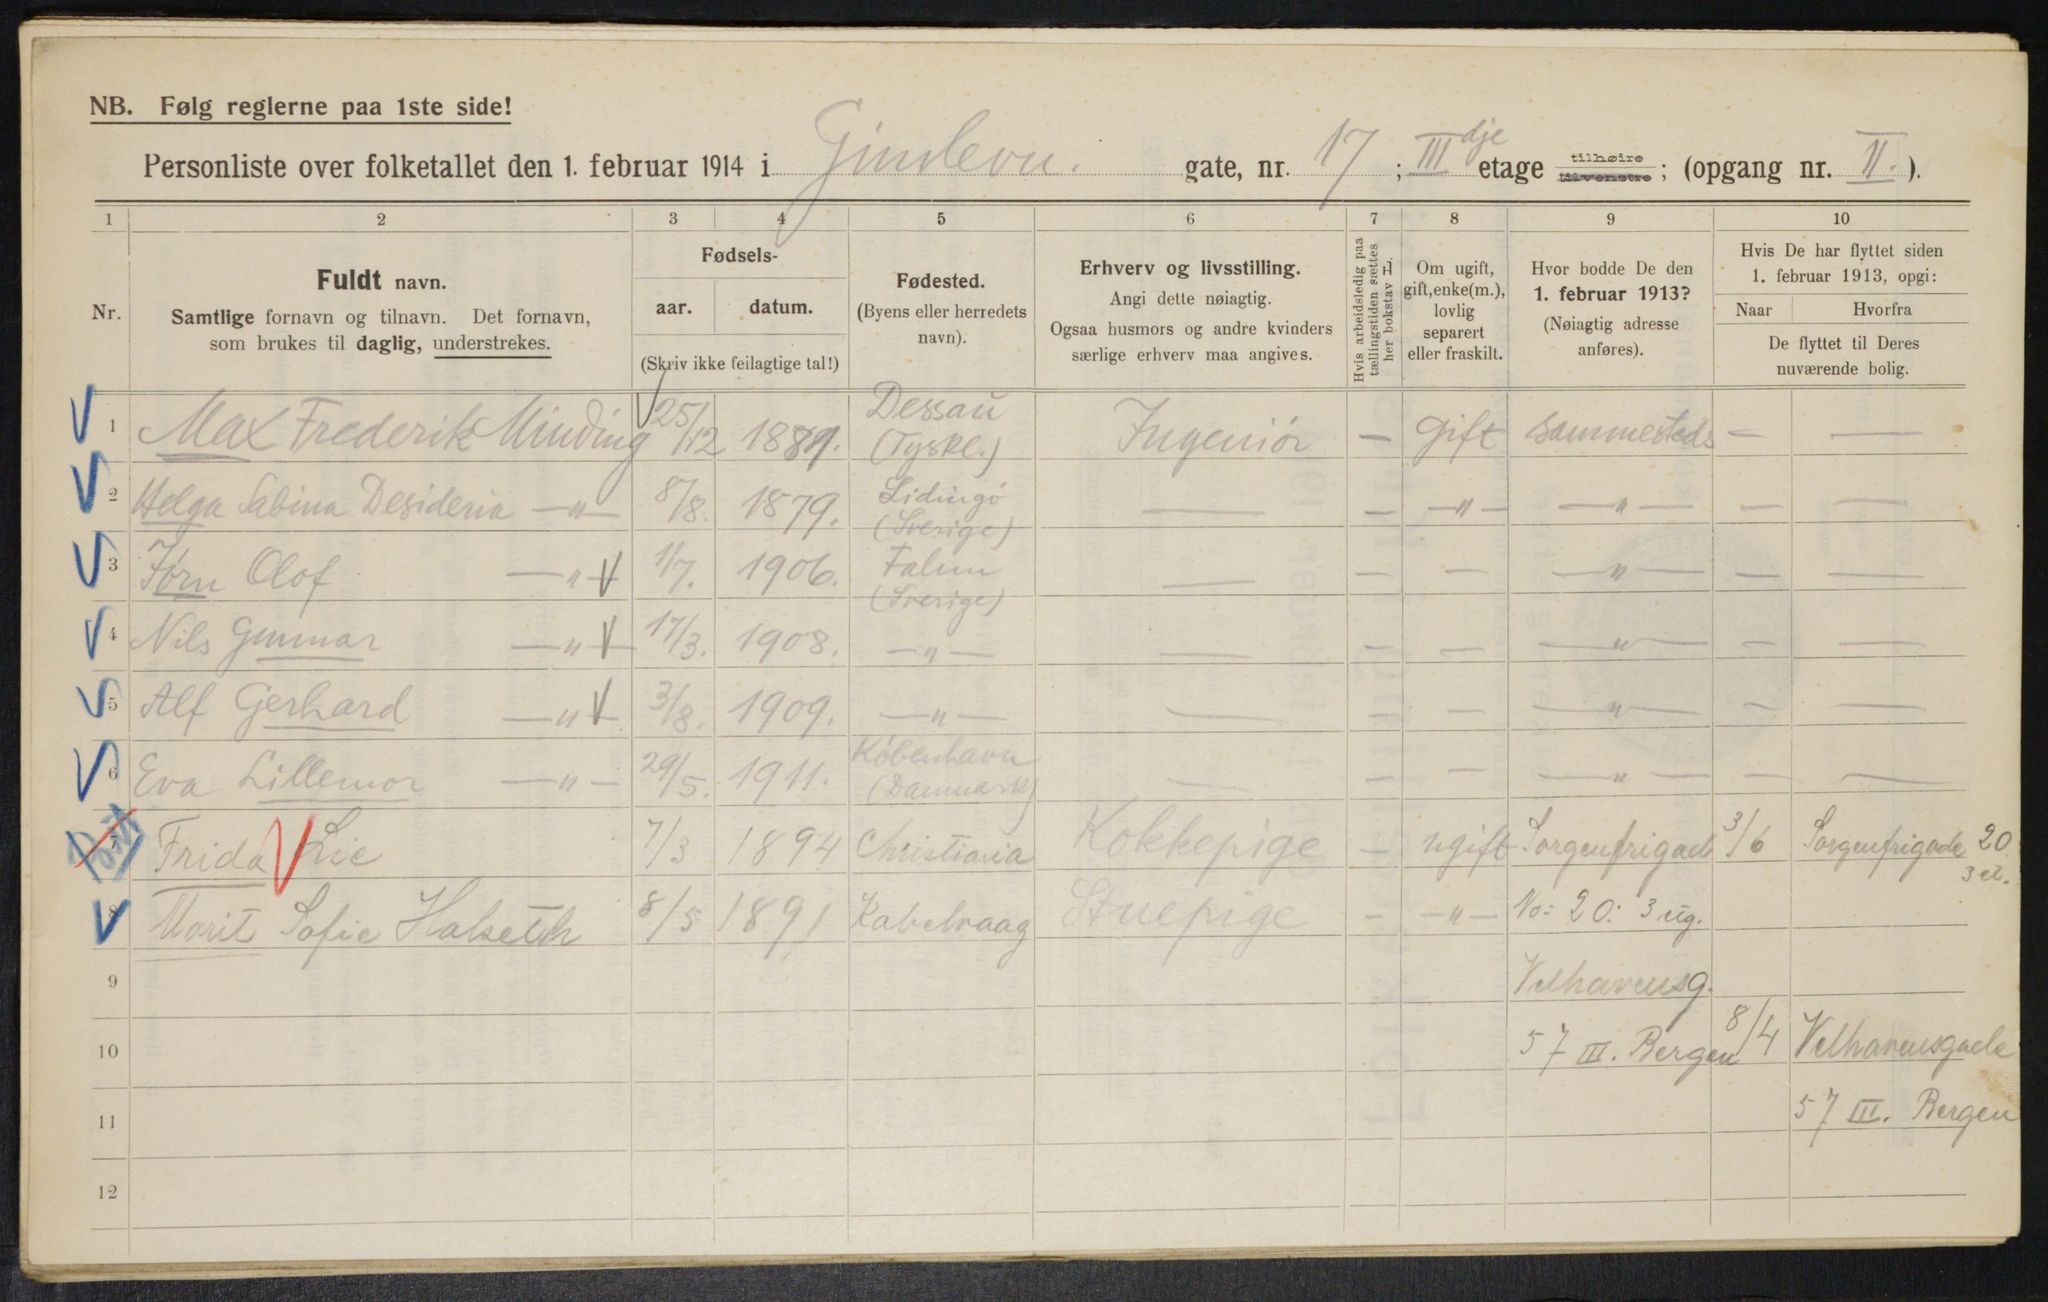 NB. Følg reglerne paa 1ste side!
Personliste over folketallet den 1. februar 1914 i Gimleven. gate, nr. 17 ; III dje etage tilhøire tilvenstre ; (opgang nr. II. ).
1 2 3 4 5 6 7 8 9 10
Nr.
Fuldt navn.
Samtlige fornavn og tilnavn. Det fornavn,
som brukes til daglig, understrekes.
Fødsels-
aar. datum.
(Skriv ikke feilagtige tal!)
Fødested.
(Byens eller herredets
navn).
Erhverv og livsstilling.
Angi dette nøiagtig.
Ogsaa husmors og andre kvinders
særlige erhverv maa angives.
Hvis arbeidsledig paa
tællingstiden sættes
her bokstav L.
Om ugift,
gift, enke(m.),
lovlig
separert
eller fraskilt.
Hvor bodde De den
1. februar 1913?
(Nøiagtig adresse
anføres).
Hvis De har flyttet siden
1. februar 1913, opgi:
Naar Hvorfra
De flyttet til Deres
nuværende bolig.
1 Max Frederik Minding 25/12 1879. Dessau (Tyskl.) Ingeniör — gift sammesteds — —
2 Helga Sabina Desideria —"— 8/8. 1879. Lidingö (Sverige) — — —"— —"— — —
3 Jörn Olof —"— 1/7. 1906. Falun (Sverige) — — — —"— — —
4 Nils Gunnar —"— 17/3. 1908. —"— — — — —"— — —
5 Alf Gerhard —"— 3/8. 1909. —"— — — — —"— — —
6 Eva Lillemor —"— 29/5. 1911. København (Danmark) — — — —"— — —
7 Frida Lie 7/3 1894 Christiania Kokkepige — ugift Sorgenfrigade 3/6 Sorgenfrigade 20 3 et.
8 Marit Sofie Halseth 8/5 1891 Kabelvaag Stuepige — —"— No: 20: 3 eg.
9 Velhavensg.
10 57 III. Bergen 8/4 Velhavensgade
11 57 III. Bergen
12